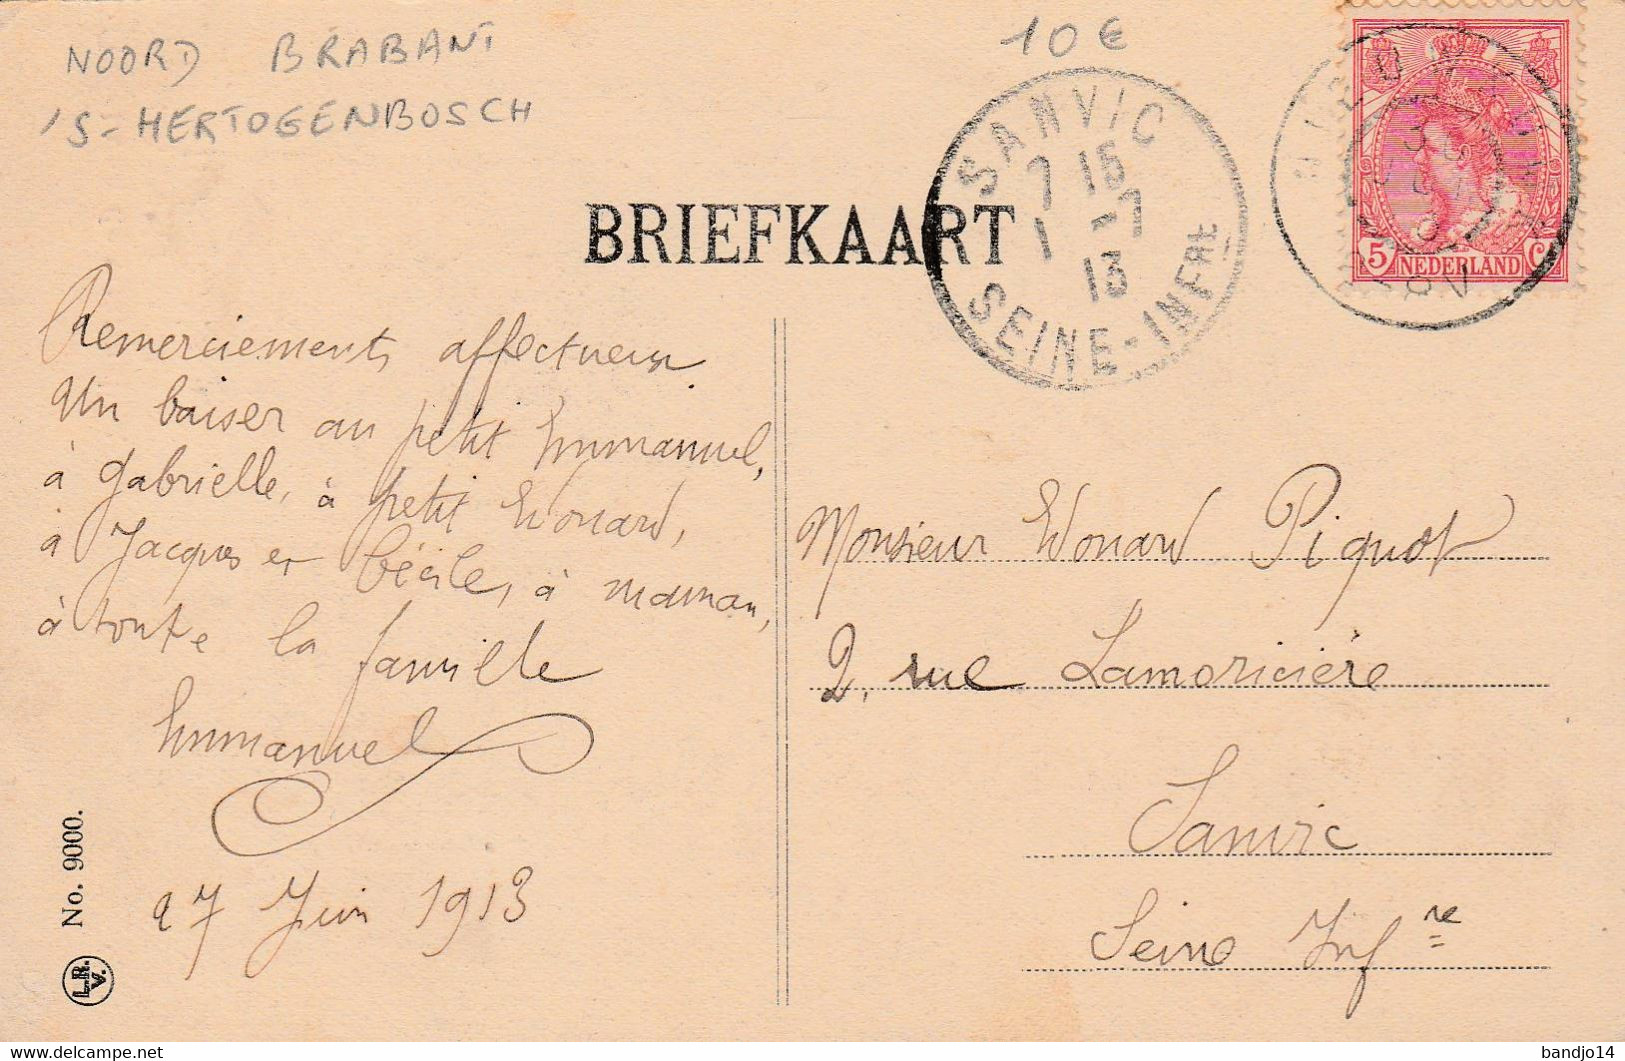 NOORD BRABANT
'S-HERTOGENBOSCH
10 €
SANVIC
7 15
1 -7
13
SEINE-INFRE
5 NEDERLAND C
BRIEFKAART
Remerciements affectueux.
Un baiser au petit Emmanuel,
à Gabrielle, à petit Edouard,
à Jacques et Cécile, à maman,
à toute la famille
Emmanuel
27 Juin 1913
Monsieur Edouard Piquot
2, rue Lamoricière
Sanvic
Seine Infre
No. 9000.
L.R.
V.
bandjo14